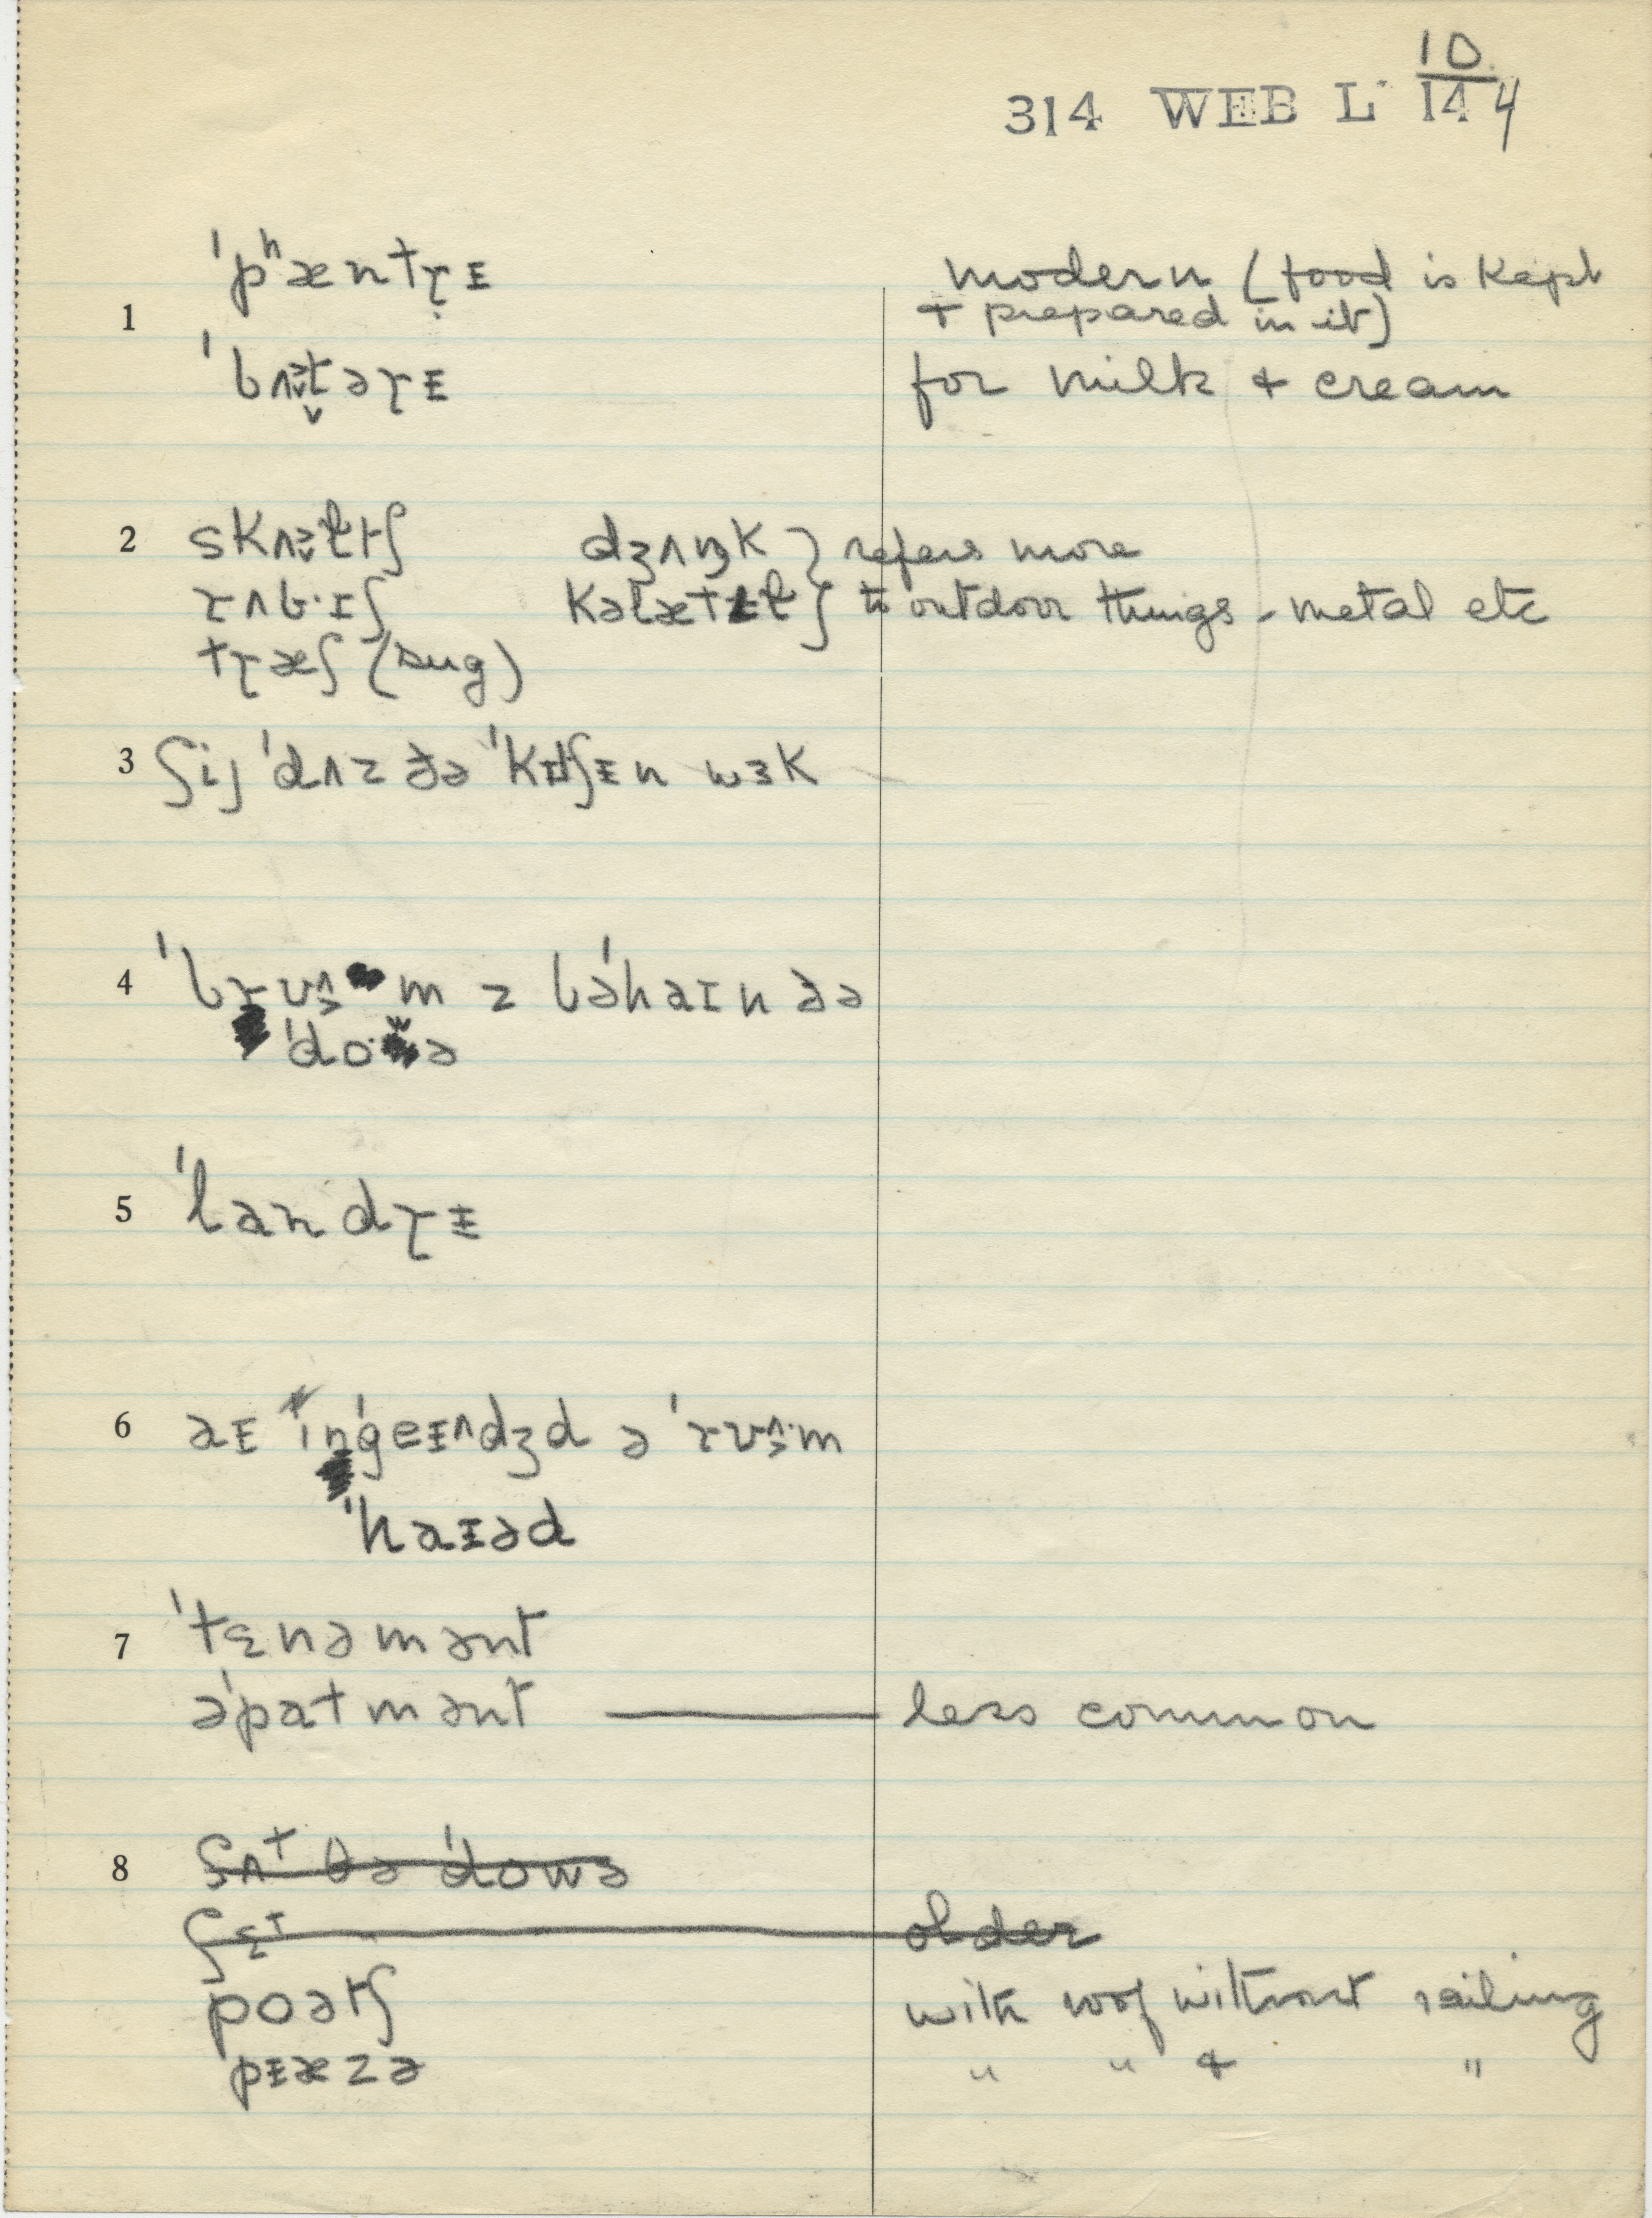 10
314 WEB L 144
ˈpʰæntɽɪ̵ modern (food is kept
1 + prepared in it)
ˈbʌtəɽɪ̵ for milk + cream
2 skʌltʃ dʒʌŋk } refers more
ɽʌb·ɪʃ to outdoor things - metal etc
tɽæʃ (sug)
3 ʃij ˈdʌz ðə ˈkɪtʃɪ̵n wɜk
4 ˈbɽʊm z bəˈhaɪn ðə
ˈdowə
5 ˈlandɽɪ̵
6 aɪ̵ ɪnˈgeɪ̵ndʒd ə ˈɽʊm
ˈhaɪ̵əd
7 ˈtɛnəmənt
əˈpatmənt less common
8 ʃʌt ðə ˈdowə
ʃɛt older
poətʃ with roof without railing
pɪ̵æzə " " & "